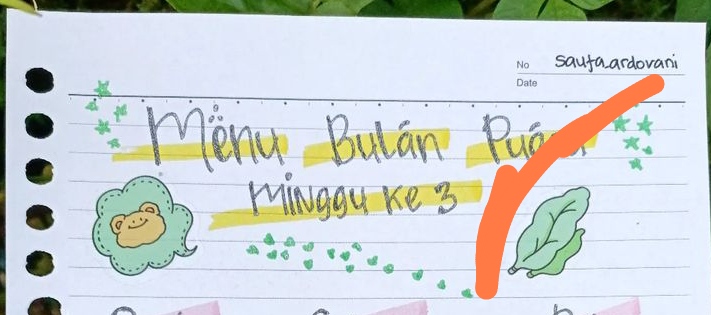 No sauta_ardovani
Date
Mënu Bulán
Minggu Ke 3